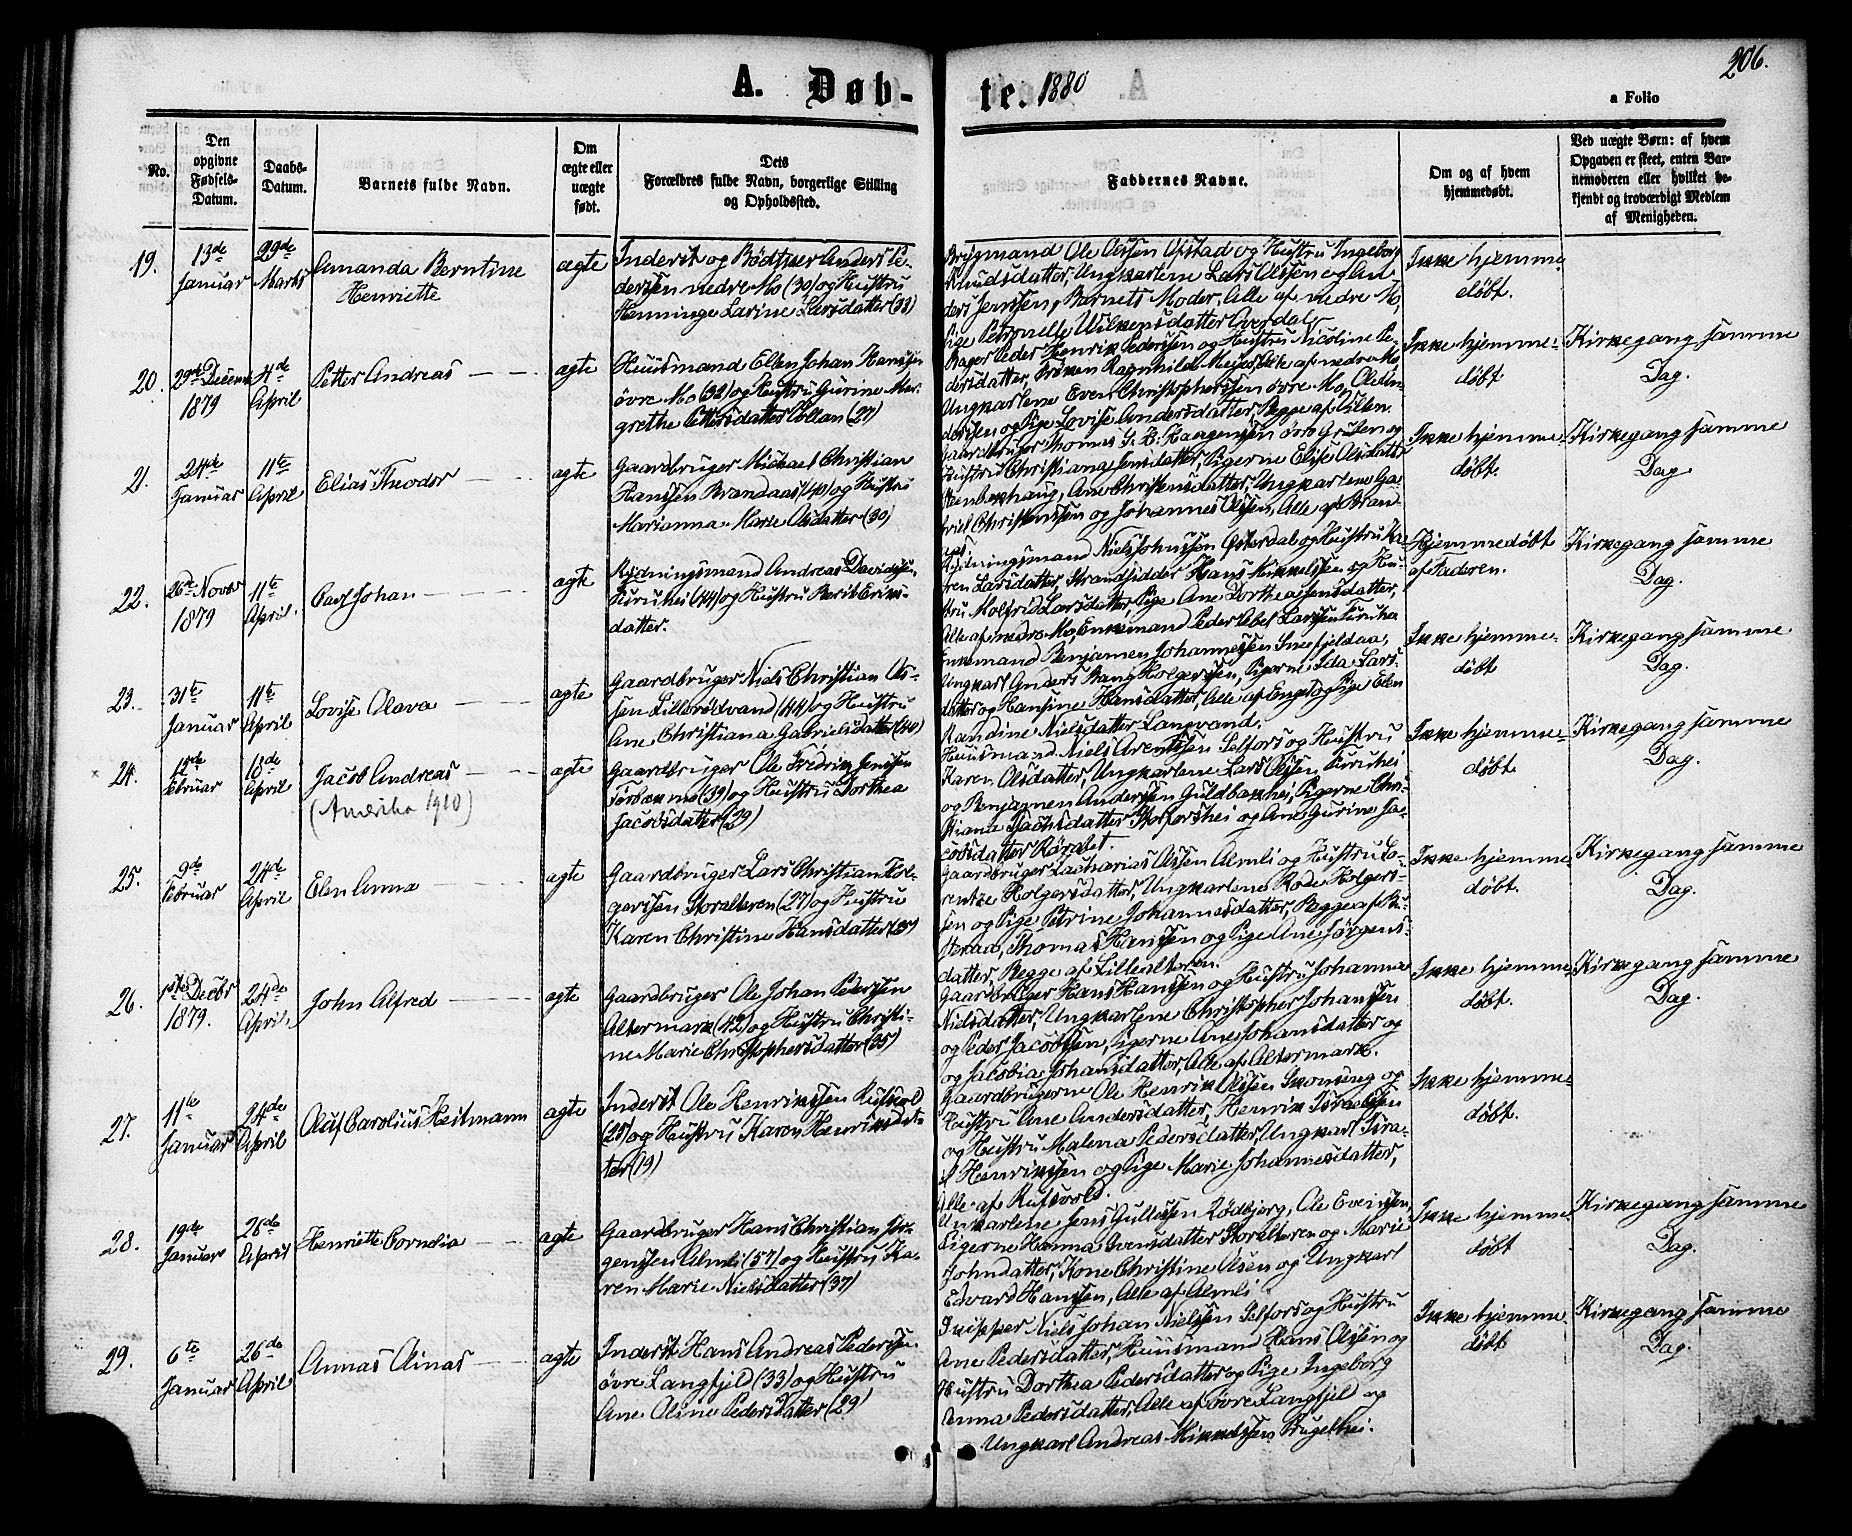 206.
A. Døb-
te. 1880
a Folio
No.
Den
opgivne
Fødsels-
Datum.
Daabs-
Datum.
Barnets fulde Navn.
Om
ægte eller
uægte
født.
Dets
Forældres fulde Navn, borgerlige Stilling
og Opholdssted.
Faddernes Navne.
Om og af hvem
hjemmedøbt.
Ved uægte Børn: af hvem
Opgaven er skeet, enten Bar-
nemoderen eller hvilket be-
kjendt og troværdigt Medlem
af Menigheden.
19.
13de
Januar
29de
Marts
Amanda Berntine
Henriette
ægte
Inderst og Bødtker Anders Pe-
dersen nedre Mo (30) og Hustru
Henninge Larine Larsdatter (33)
Brygmand Ole Olsen Opstad og Hustru Ingeborg
Knudsdatter, Ungkarlene Lars Olssen og An
ders Jenssen, Barnets Moder, Alle af nedre Mo,
Pige Petronelle Wilkensdatter Overdal
Ikke hjemme-
døbt.
20.
29de Decemb
1879
4de
April
Petter Andreas
ægte
Huusmand Elten Johan Hanssen
øvre Mo (32) og Hustru Gurine Mar-
grethe Pettersdatter Collan (27)
Bager Peder Henrik Pedersen og Hustru Nicoline Pe-
dersdatter, Frøken Ragnhilde Meyer, Alle af nedre Mo
Ungkarlene Even Christophersen øvre Mo, Ole An-
dersen og Pige Lovise Andersdatter, Begge af Ytteren.
Ikke hjemme-
døbt
Kirkegang samme
Dag.
21.
24de
Januar
11te
April
Elias Theodor
ægte
Gaardbruger Michael Christian
Hanssen Brandaas (40) og Hustru
Marianna Marie Olsdatter (30)
Gaardbruger Thomas St. B. Haagensen øvre Gruben og
Hustru Christiane Jensdatter, Pigerne Elise Olsdatter
Stenbekhaug, Ane Christensdatter, Ungkarlene Ga-
briel Christenssen og Johannes Olssen, Alle af Bran-
aas
Ikke hjemme-
døbt.
Kirkegang samme
Dag
22.
26de Novbr
1879
11te
April.
Carl Johan
ægte
Rydningsmand Andreas Davidsen
Furuhei (44) og Hustru Berit Eriks-
datter.
Rydningsmand Niels Johnssen Østerdal og Hustru Ka-
ren Larsdatter, Strandsidder Hans Mikkelssen og Hu-
stru Molfrid Larsdatter, Pige Ane Dorthea Jensdatter,
Alle af nedre Mo, Enkemand Peder Abel Larssen Furuhei
Hjemmedøbt
af Faderen.
Kirkegang samme
Dag.
23.
31te
Januar
11te
April
Lovise Olava
ægte
Gaardbruger Niels Christian Ols-
sen Lillerødvand (44) og Hustru
Ane Christiana Gabrielsdatter (40)
Enkemand Benjamen Johannessen Snefjeldaa,
Ungkarl Anders Bang Holgersen, Pigerne Ida Lars-
datter og Hansine Hansdatter, Alle af Enget og Pige Elen
Randine Nielsdatter Langvand.
Ikke hjemme-
døbt
Kirkegang samme
Dag.
24.
12de
Februar
18de
April
Jacob Andreas
(Amerika 1910)
ægte
Gaardbruger Ole Fredrik Jenssen
Forbakmo (39) og Hustru Dorthea
Jacobsdatter (29)
Huusmand Niels Arentssen Selfors og Hustru
Karen Olsdatter, Ungkarlene Lars Olssen Furuhei
og Benjamen Anderssen Guldbakhei, Pigerne Chri-
stiane Isachsdatter Storforshei og Ane Gurine Ja-
cobsdatter Røraset.
Ikke hjemme-
døbt.
Kirkegang samme
Dag.
25.
9de
Februar
24de
April
Elen Anna
ægte
Gaardbruger Lars Christian Hol-
gerssen Storalteren (27) og Hustru
Karen Christine Hansdatter (25)
Gaardbruger Zacharias Olssen Almli og Hustru Lo-
rentse Holgersdatter, Ungkarlene Rode Holgers-
sen og Pige Petrine Johannesdatter, Begge af Bu-
steraa, Thomas Hanssen og Pige Ane Jørgens-
datter, Begge af Lillealteren.
Ikke hjemme
døbt.
Kirkegang samme
Dag.
26.
1ste Decbr
1879.
24de
April.
John Alfred
ægte
Gaardbruger Ole Johan Pederssen
Altermark (42) og Hustru Christi-
ne Marie Christophersdatter (35)
Gaardbruger Hans Hanssen og Hustru Johanna
Nielsdatter, Ungkarlene Christopher Johanssen
og Peder Jacobssen, Pigerne Ane Johansdatter og
og Jacobia Johansdatter, Alle af Altermark.
Ikke hjemme
døbt.
Kirkegang samme
Dag.
27.
11te
Januar
24de
April
Oluf Carolius Heitmann
ægte
Inderst Ole Henrikssen Rufsvold
(25) og Hustru Karen Henriksdat-
ter (19)
Gaardbrugerne Ole Henrik Olssen Skonseng og
Hustru Ane Andersdatter, Henrik Israelssen
og Hustru Malena Pedersdatter, Ungkarl Isra-
el Henrikssen og Pige Marie Johannesdatter,
Alle af Rufsvold.
Ikke hjemme-
døbt.
28.
19de
Januar
26de
April
Henriette Cornelia
ægte
Gaardbruger Hans Christian Jør-
gensen Almli (57) og Hustru Ka-
ren Marie Nielsdatter (37)
Unkarlene Jens Gullessen Rødbjerg, Ole Evenssen,
Pigerne Hanna Svensdatter Storalteren og Marie
Johndatter, Kone Christine Olsen og Ungkarl
Edvard Hanssen, Alle af Almli.
Ikke hjemme
døbt
Kirkegang samme
Dag.
29.
6te
Januar
26de
April
Annas Ainas
ægte
Inderst Hans Andreas Pederssen
øvre Langfjeld (33) og Hustru
Ane Oline Pedersdatter (29)
Skipper Niels Johan Nielsen Selfors og Hustru
Ane Pedersdatter, Huusmand Hans Olssen og
Hustru Dorthea Pedersdatter og Pige Ingeborg
Anna Pedersdatter, Alle af øvre Langfjeld og
Ungkarl Andreas Mikkelssen Brugelhei.
Ikke hjemme
døbt
Kirkegang samme
Dag.